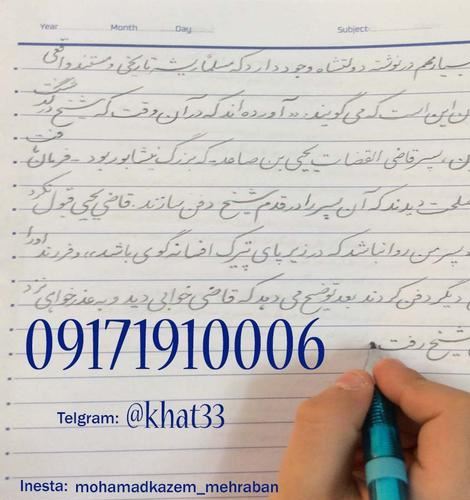 Year Month Day Subject:
بسیار مهم در نوشته دولتشاه وجود دارد که مسلماً ریشه تاریخی و مستند واقعی
این است که می‌گویند: «آورده‌اند که در آن وقت که شیخ درگذشت
پسر قاضی القضات یحیی بن صاعد که بزرگ نیشابور بود - فرمان یافت
مصلحت دیدند که آن پسر را در قدم شیخ دفن سازند. قاضی یحیی قبول نکرد
و پسر من روا نباشد که در زیر پای پیرک افسانه گوی باشد،، و فرزند او را
دیگر دفن کردند بعد توضیح می دهد که قاضی خوابی دید و به عذرخواهی نزد
شیخ رفت
09171910006
Telgram: @khat33
Inesta: mohamadkazem_mehraban